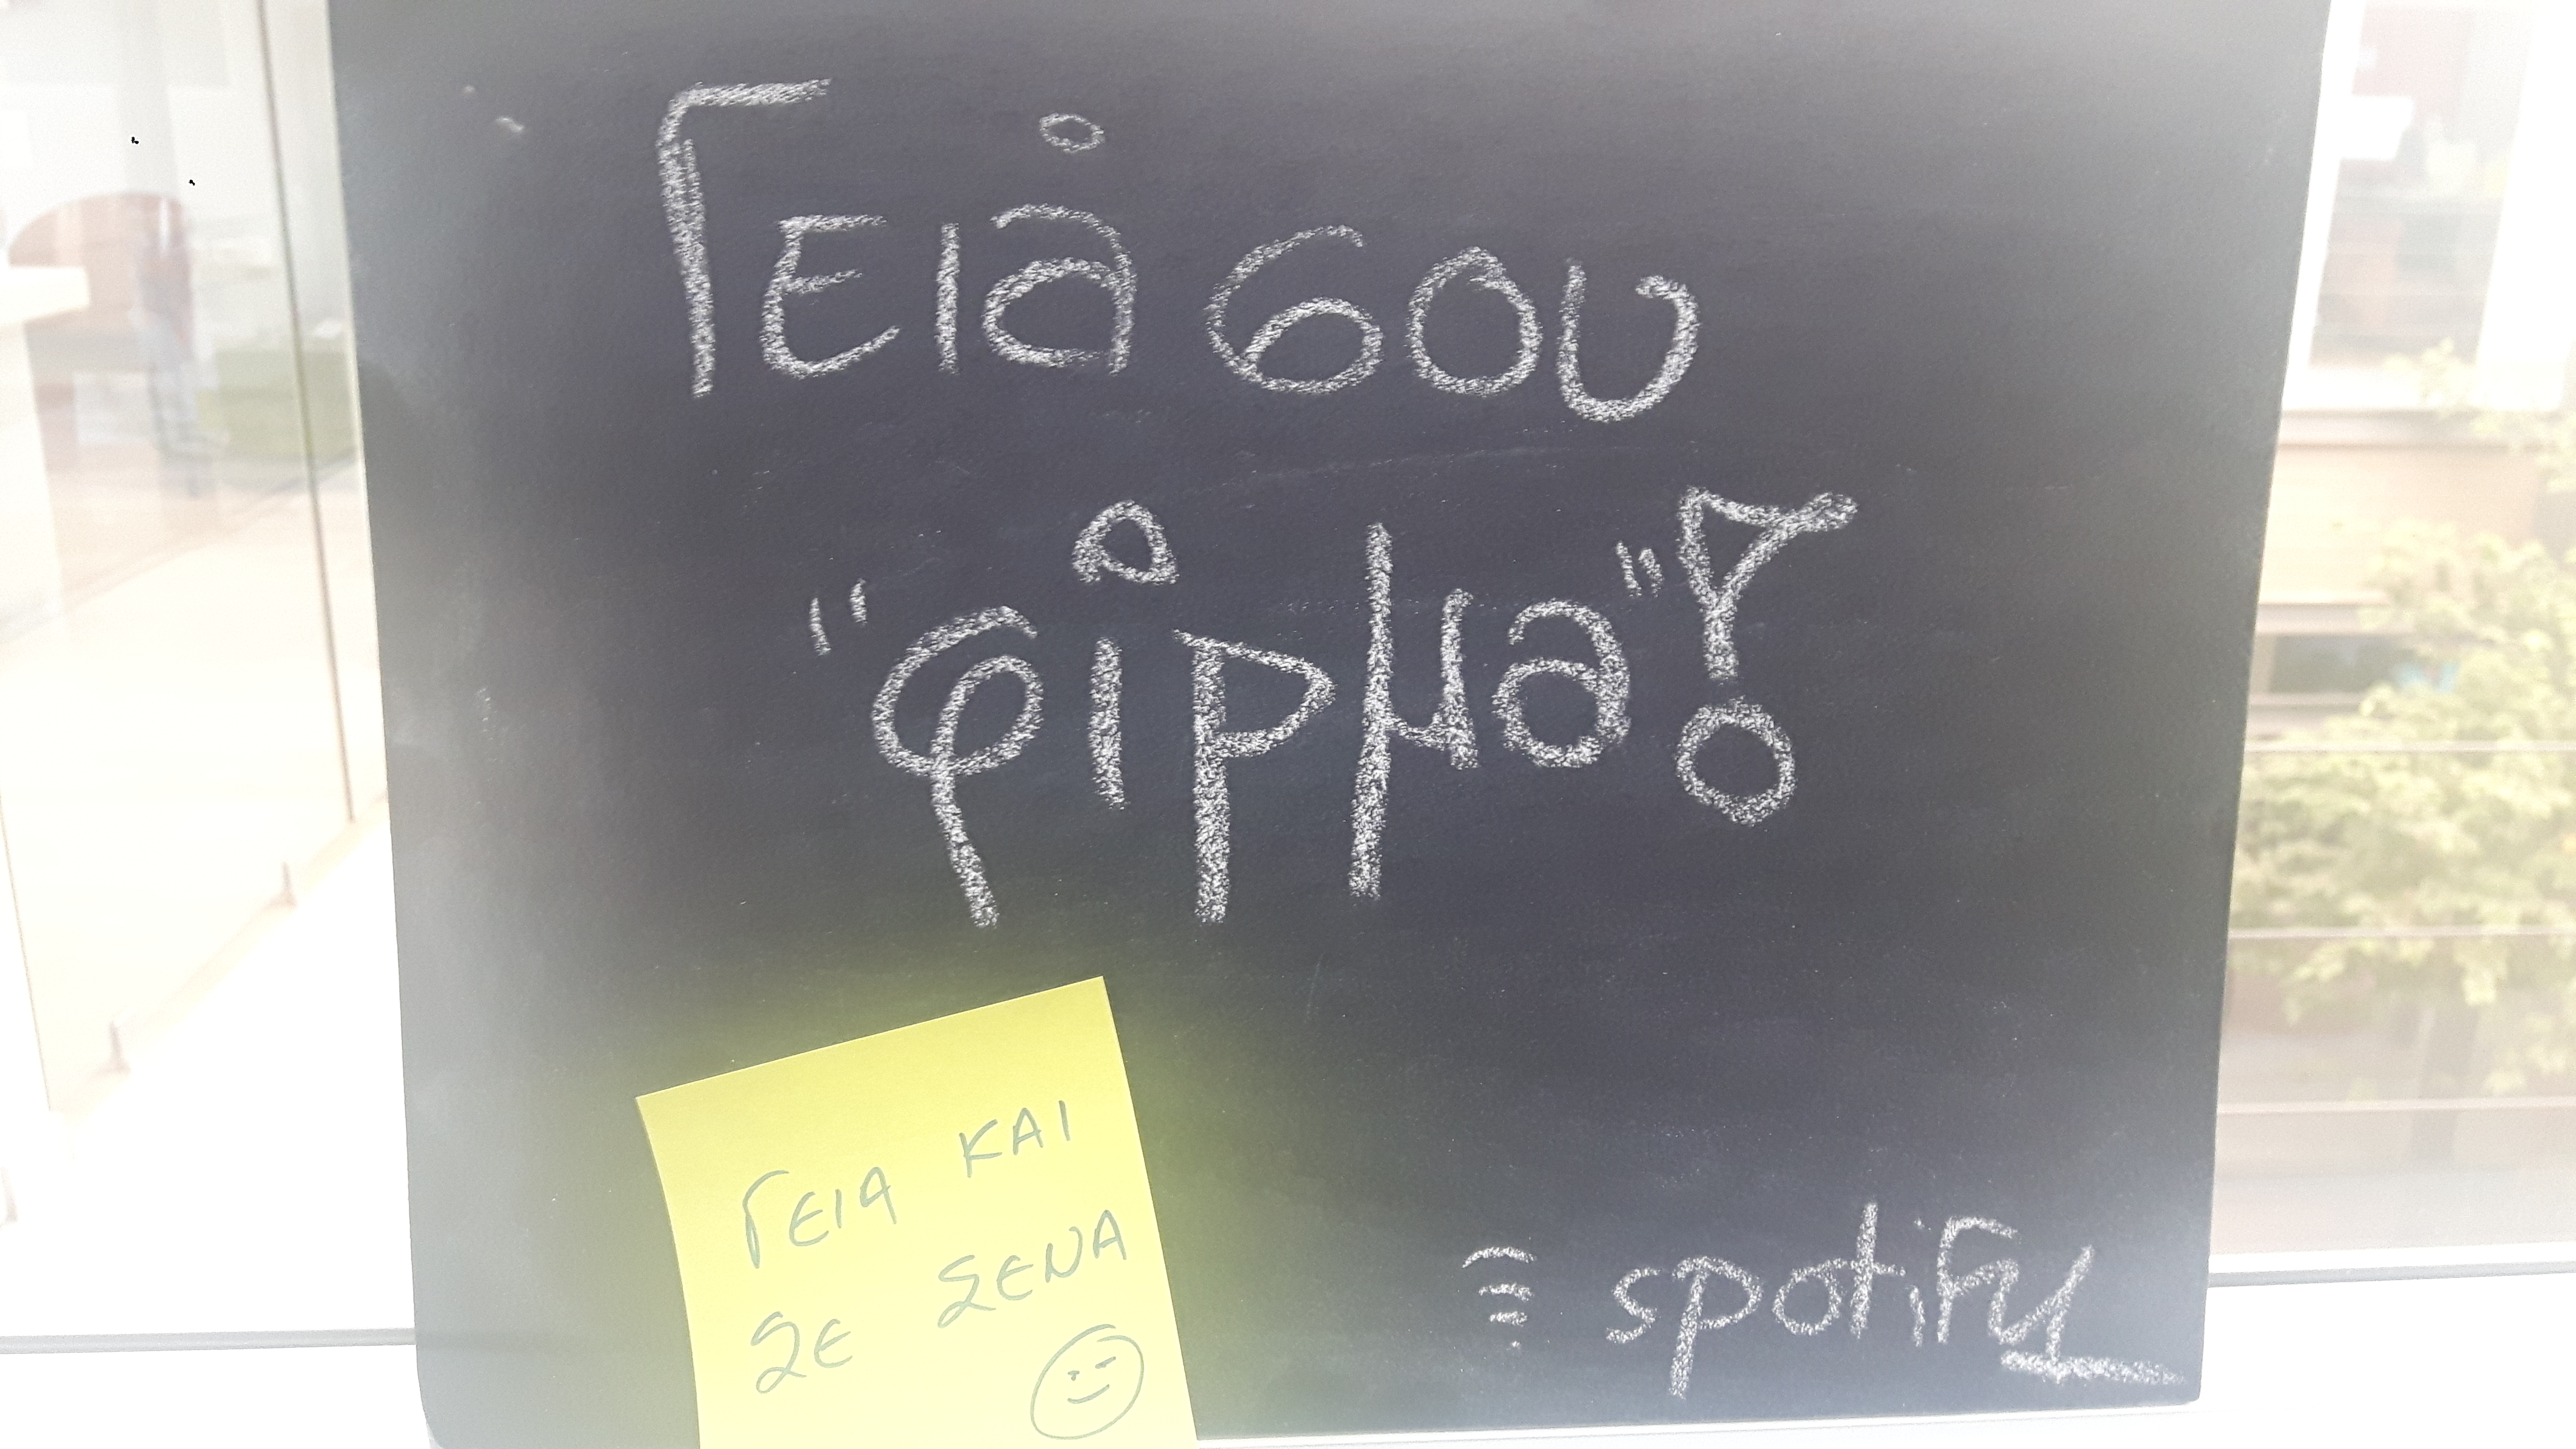 Γειά σου
"φίρμα"!
ΓΕΙΑ ΚΑΙ
ΣΕ ΣΕΝΑ
spotify